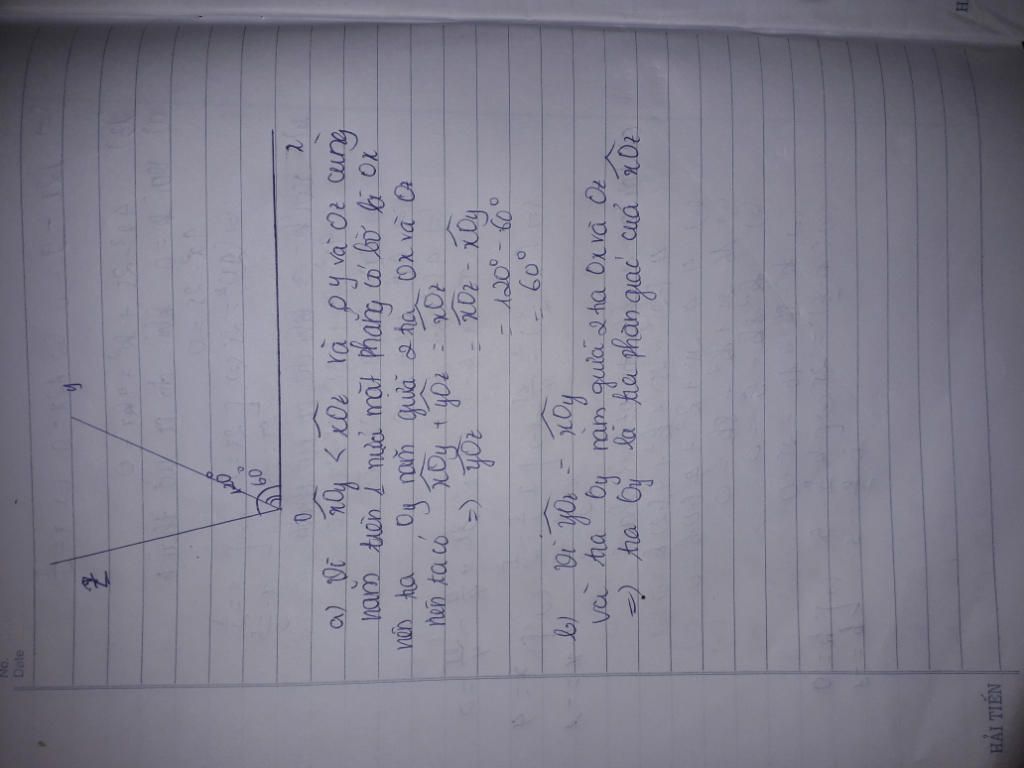 No.
Date
Z
y
120°
60°
O
x
a) Vì xOy < xOz và Oy và Oz cùng
nằm trên 1 nửa mặt phẳng có bờ là Ox
nên tia Oy nằm giữa 2 tia Ox và Oz
nên ta có xOy + yOz = xOz
=) yOz = xOz - xOy
= 120° - 60°
= 60°
b) Vì yOz = xOy
và tia Oy nằm giữa 2 tia Ox và Oz
=) tia Oy là tia phân giác của xOz
HẢI TIẾN
H